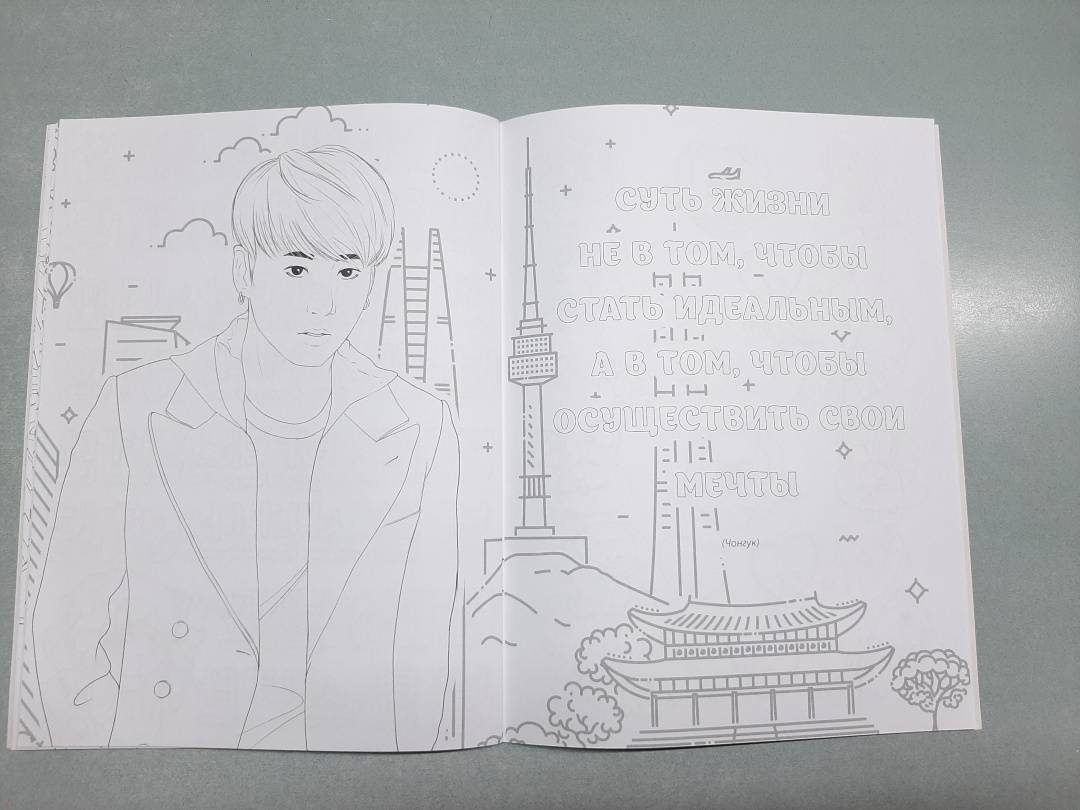 СУТЬ ЖИЗНИ
НЕ В ТОМ, ЧТОБЫ
СТАТЬ ИДЕАЛЬНЫМ,
А В ТОМ, ЧТОБЫ
ОСУЩЕСТВИТЬ СВОИ
МЕЧТЫ
(Чонгук)